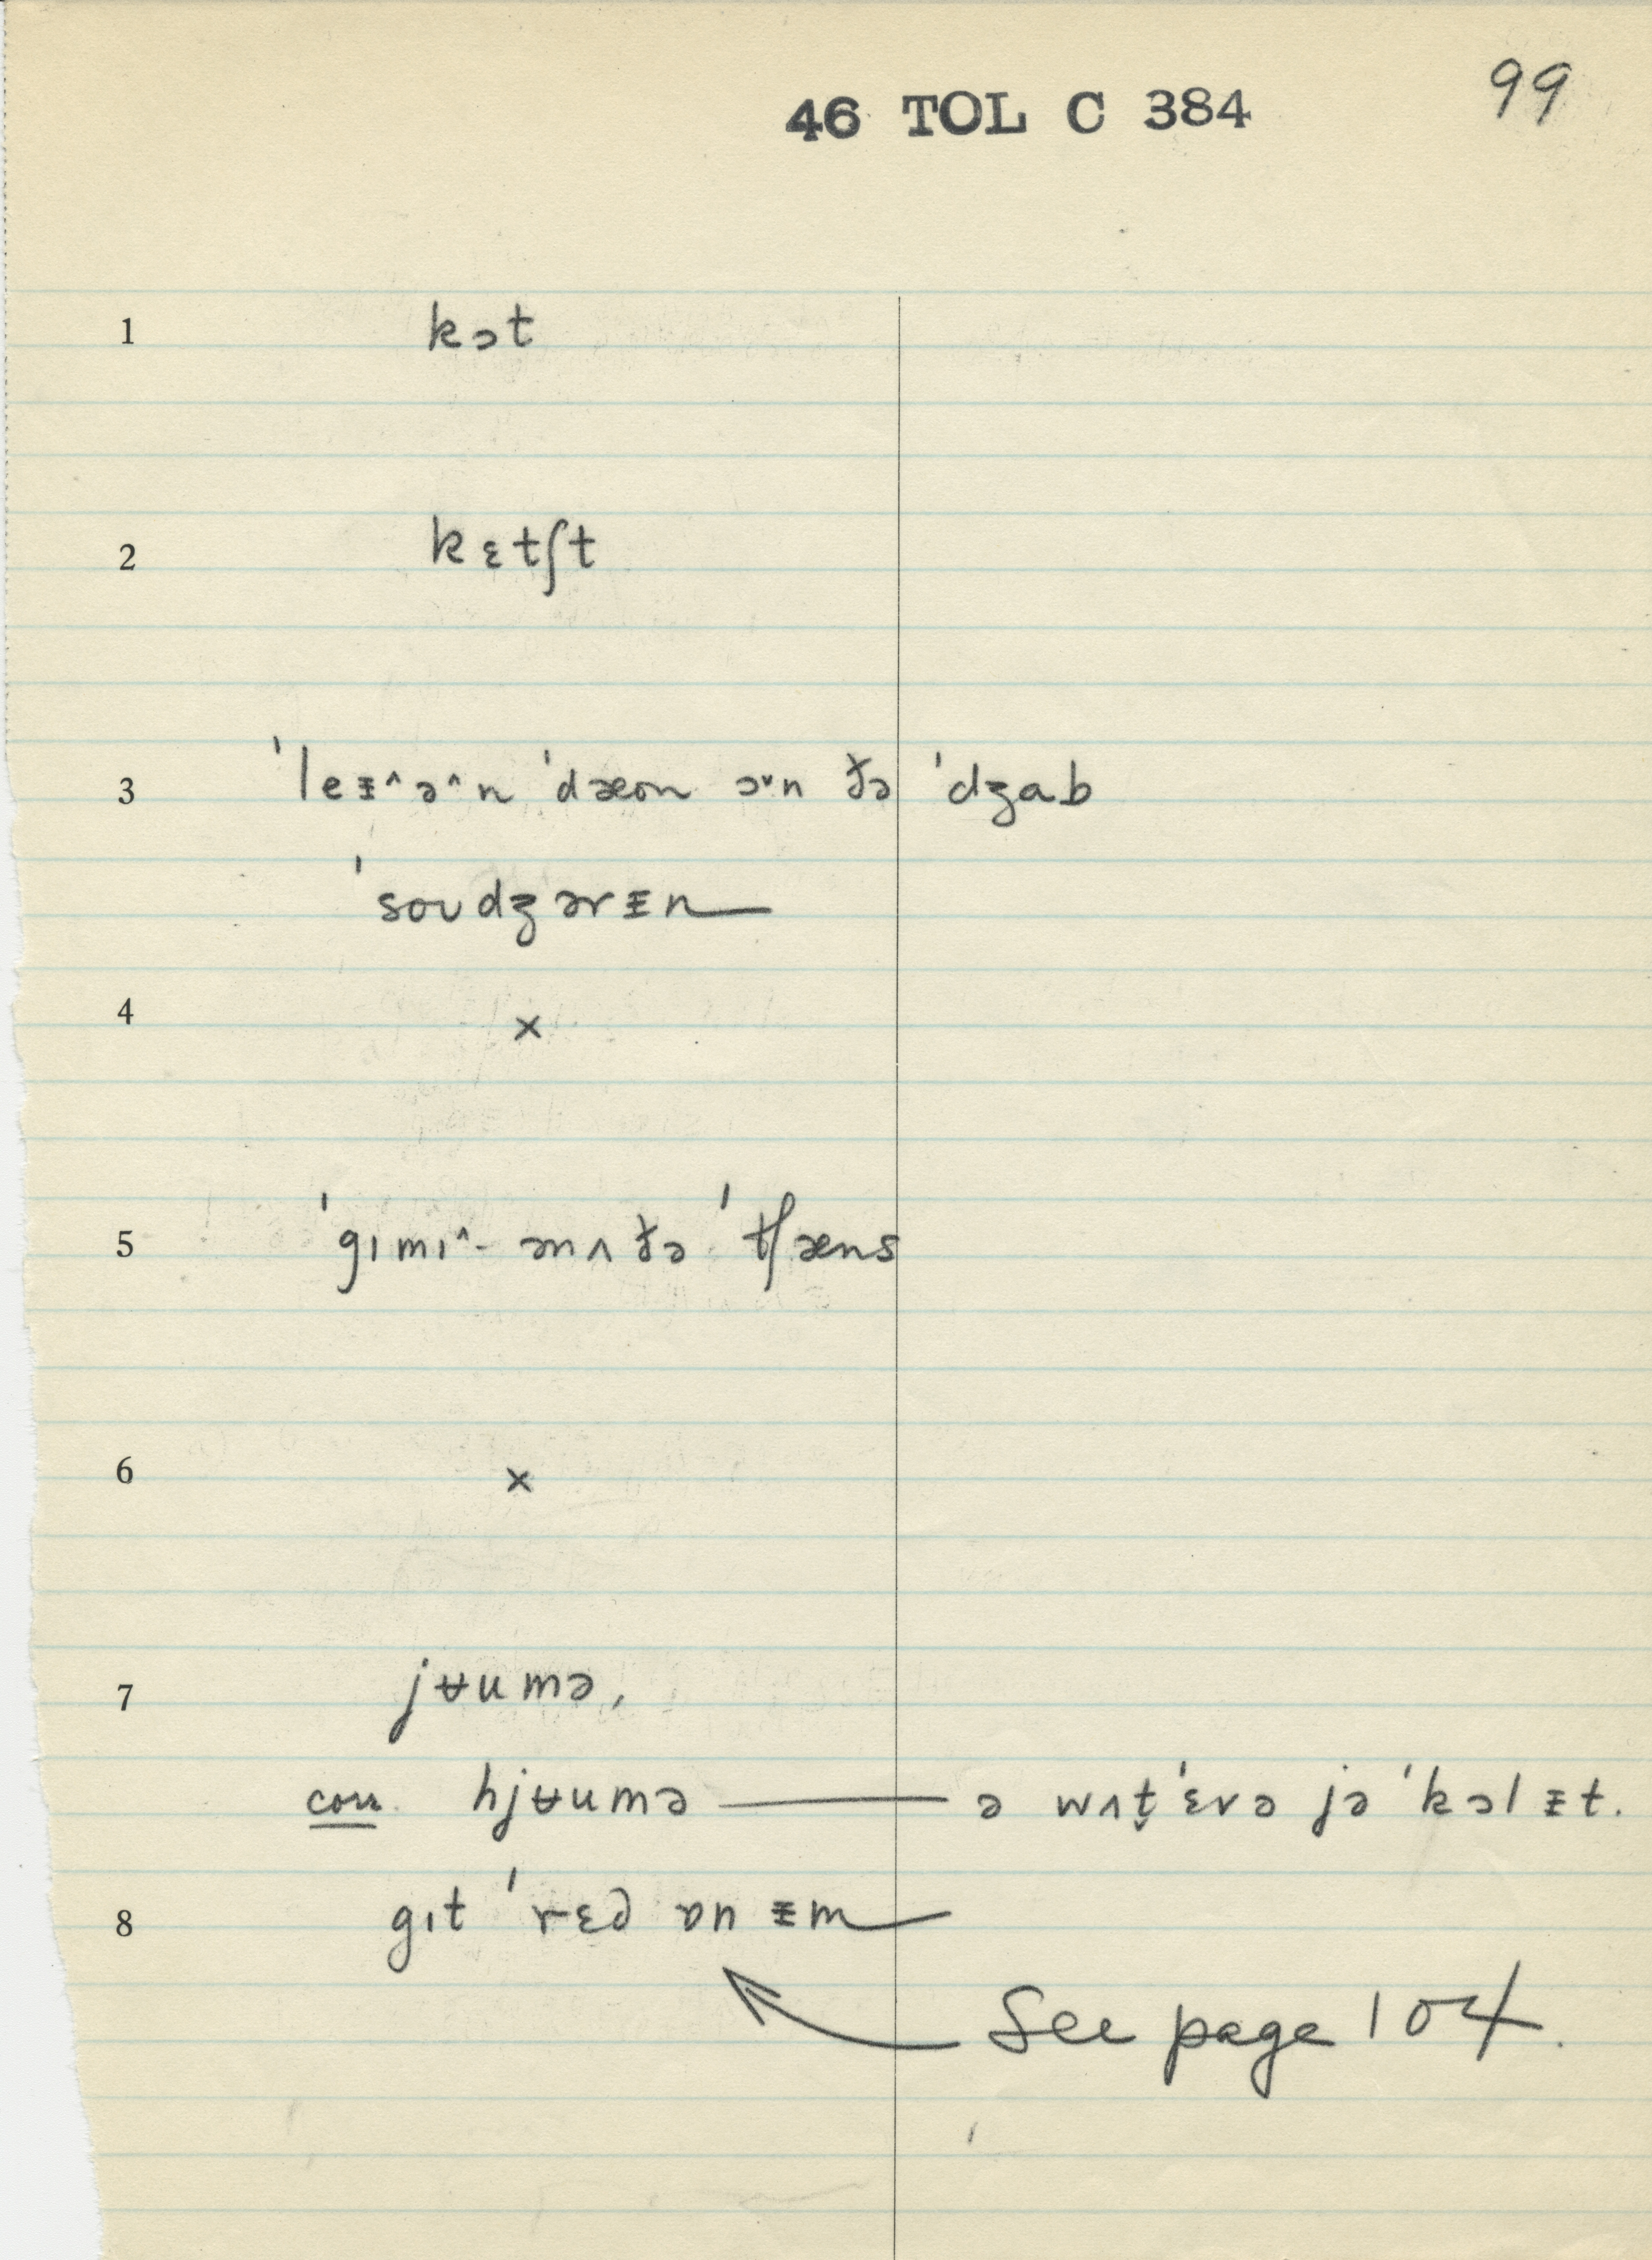 99
46 TOL C 384
1 kɔt
2 kɛtʃt
3 ˈleᵻ^ə^n ˈdæon ɔ˅n ðə ˈdʒab
ˈsoʊdʒərᵻn—
4 ×
5 ˈgɪmɪ^- ənʌðə ˈtʃæns
6 ×
7 jʉumə,
corr. hjʉumə — ə wʌt̬ˈɛvə jə ˈkɔlᵻt.
8 gɪt ˈrɛd ɒn ᵻm—
See page 104.